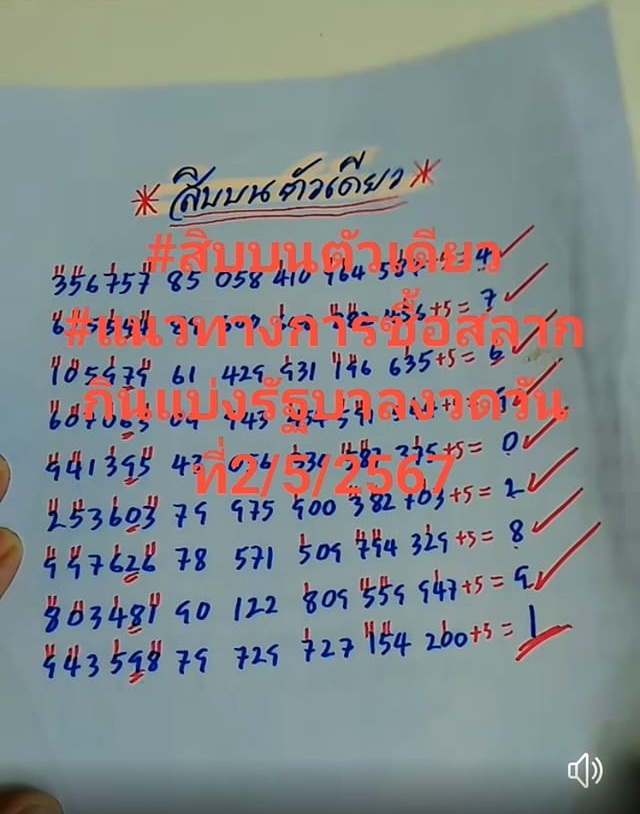 * สิบบนตัวเดียว *
#สิบบนตัวเดียว
#แนวทางการซื้อสลาก
กินแบ่งรัฐบาลงวดวัน
ที่2/5/2567
356757 85 058 410 964 = 4
+5 = 7
105979 61 429 931 196 635+5 = 6
607063
941395 43 375+5 = 0
253603 79 975 900 382 703+5 = 2
997626 78 571 509 794 329+5 = 8
803481 90 122 809 559 947+5 = 9
943598 79 729 727 154 200+5 = 1